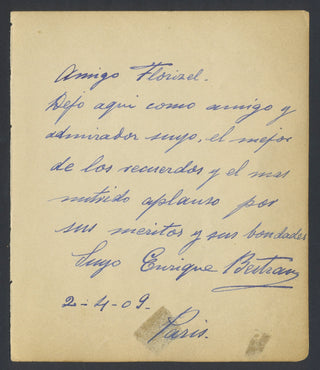 Amigo Florizel.
Dejo aqui como amigo y
admirador suyo, el mejor
de los recuerdos y el mas
nutrido aplauso por
sus meritos y sus bondades
Suyo Enrique Beltran
2-4-09.
Paris.